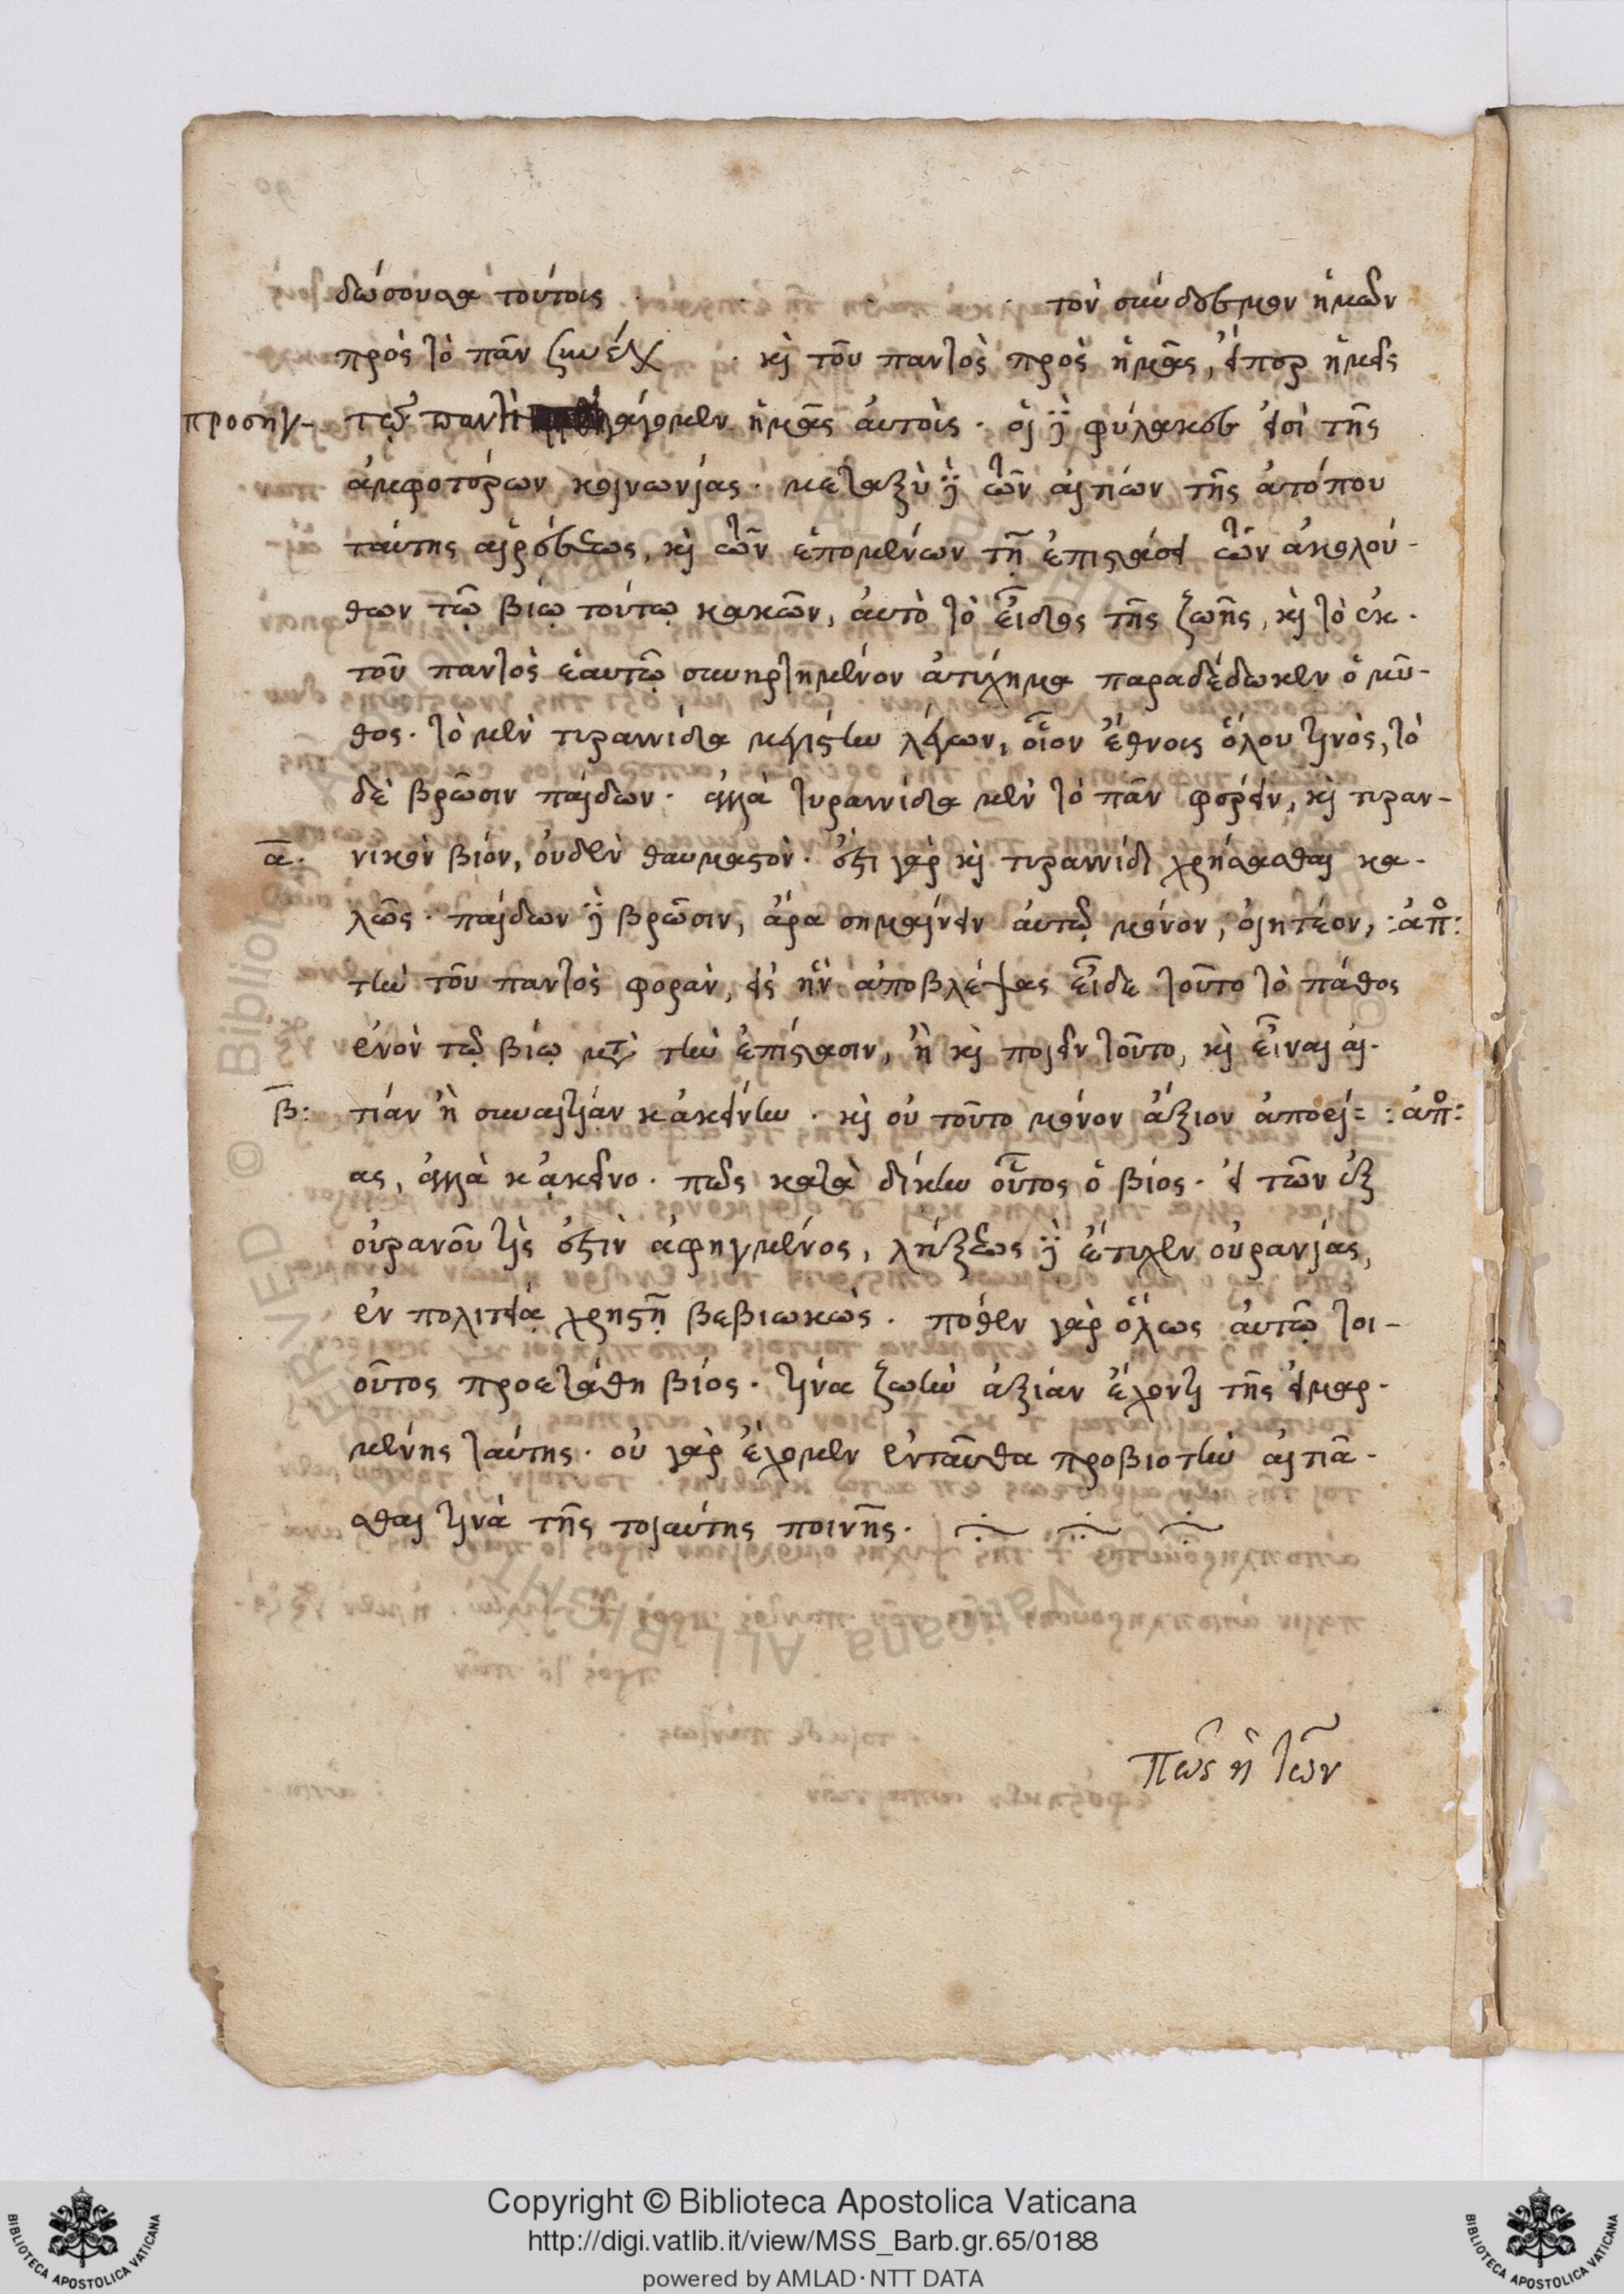 δώσουσα τούτοις · · · · τὸν σύνδεσμον ἡμῶν
πρὸς τὸ πᾶν συνέχ · καὶ τοῦ παντὸς πρὸς ἡμᾶς, εἴπερ ἡμεῖς
προσηγ- τῷ παντὶ γάγομεν ἡμᾶς αὐτοῖς · οἱ δὲ φύλακες εἰσὶ τῆς
ἀμφοτέρων κοινωνίας · μεταξὺ δὲ τῶν αἰτιῶν τῆς ἀτόπου
ταύτης αἱρέσεως, καὶ τῶν ἑπομένων τῇ ἐπιστάσει τῶν ἀκολού-
θων τῷ βίῳ τούτῳ κακῶν, αὐτὸ τὸ εἶδος τῆς ζωῆς, καὶ τὸ ἐκ
τοῦ παντὸς ἑαυτῷ συνηρτημένον ἀτύχημα παραδέδωκεν ὁ μῦ-
θος · τὸ μὲν τυραννίδα μεγίστην λέγων, οἷον ἔθνους ὅλου τινὸς, τὸ
δὲ βρῶσιν παίδων · ἀλλὰ τυραννίδα μὲν τὸ πᾶν φέρειν, καὶ τυραν-
α · νικὸν βίον, οὐδὲν θαυμαστὸν · ἔστι γὰρ καὶ τυραννίδι χρήσασθαι κα-
λῶς · παίδων δὲ βρῶσιν, ἆρα σημαίνειν αὐτῷ μόνον, οἰητέον, : ἀπο :
τὴν τοῦ παντὸς φορὰν, εἰς ἣν ἀποβλέψας εἶδε τοῦτο τὸ πάθος
ἐνὸν τῷ βίῳ μετὰ τὴν ἐπίστασιν, ἢ καὶ ποιεῖν τοῦτο, καὶ εἶναι αἰ-
β : τίαν ἢ συναιτίαν κἀκείνην · καὶ οὐ τοῦτο μόνον ἄξιον ἀπορί- : ἀπο :
ας, ἀλλὰ κἀκεῖνο · πῶς κατὰ δίκην οὗτος ὁ βίος · εἰ τῶν ἐξ
οὐρανοῦ τίς ἐστὶν ἀφηγμένος, λήξεως δὲ ἔτυχεν οὐρανίας,
ἐν πολιτείᾳ χρηστῇ βεβιωκώς · πόθεν γὰρ ὅλως αὐτῷ τοι-
οῦτος προετάθη βίος · τίνα ζωὴν ἀξίαν ἔχοντι τῆς εἱμαρ-
μένης ταύτης · οὐ γὰρ ἔχομεν ἐνταῦθα προβιοτὴν αἰτιᾶ-
σθαι τινὰ τῆς τοιαύτης ποινῆς ·
πῶς ἡ τῶν
Copyright © Biblioteca Apostolica Vaticana
http://digi.vatlib.it/view/MSS_Barb.gr.65/0188
powered by AMLAD · NTT DATA
BIBLIOTECA APOSTOLICA VATICANA
BIBLIOTECA APOSTOLICA VATICANA